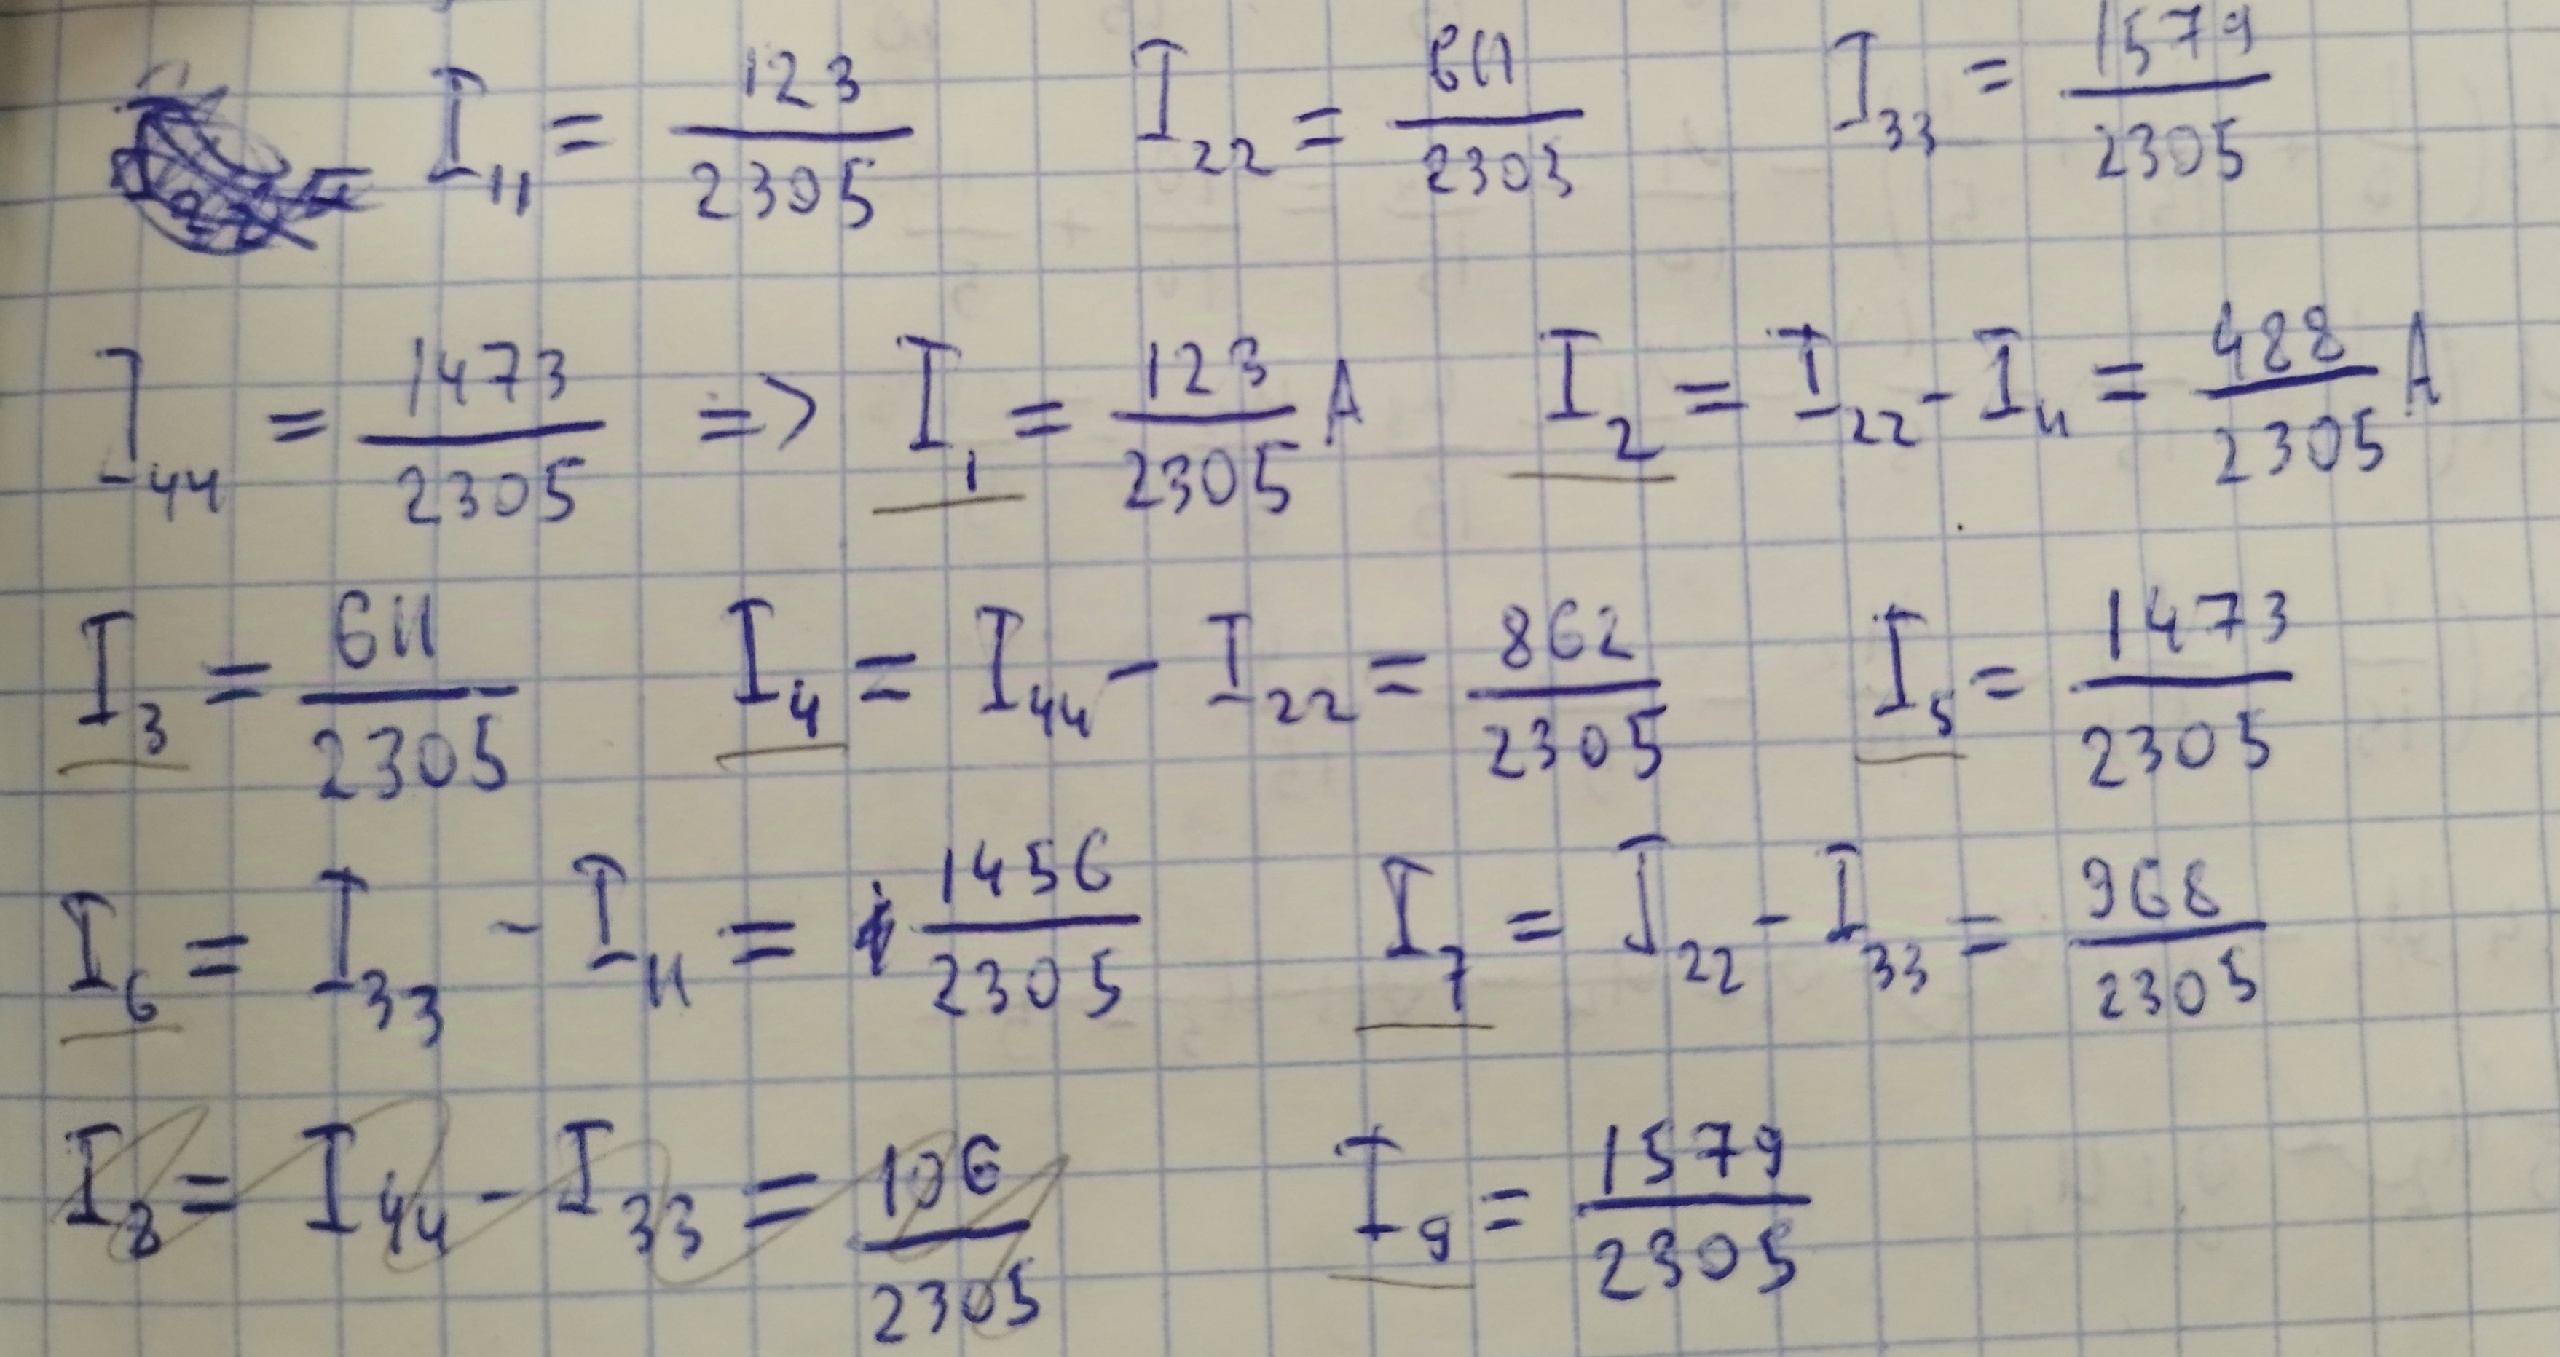 I₁₁ = 123/2305 I₂₂ = 611/2305 I₃₃ = 1579/2305
I₄₄ = 1473/2305 => I₁ = 123/2305 A I₂ = I₂₂ - I₁₁ = 488/2305 A
I₃ = 611/2305 I₄ = I₄₄ - I₂₂ = 862/2305 I₅ = 1473/2305
I₆ = I₃₃ - I₁₁ = 1456/2305 I₇ = I₂₂ - I₃₃ = 968/2305
I₈ = I₄₄ - I₃₃ = 106/2305 I₉ = 1579/2305